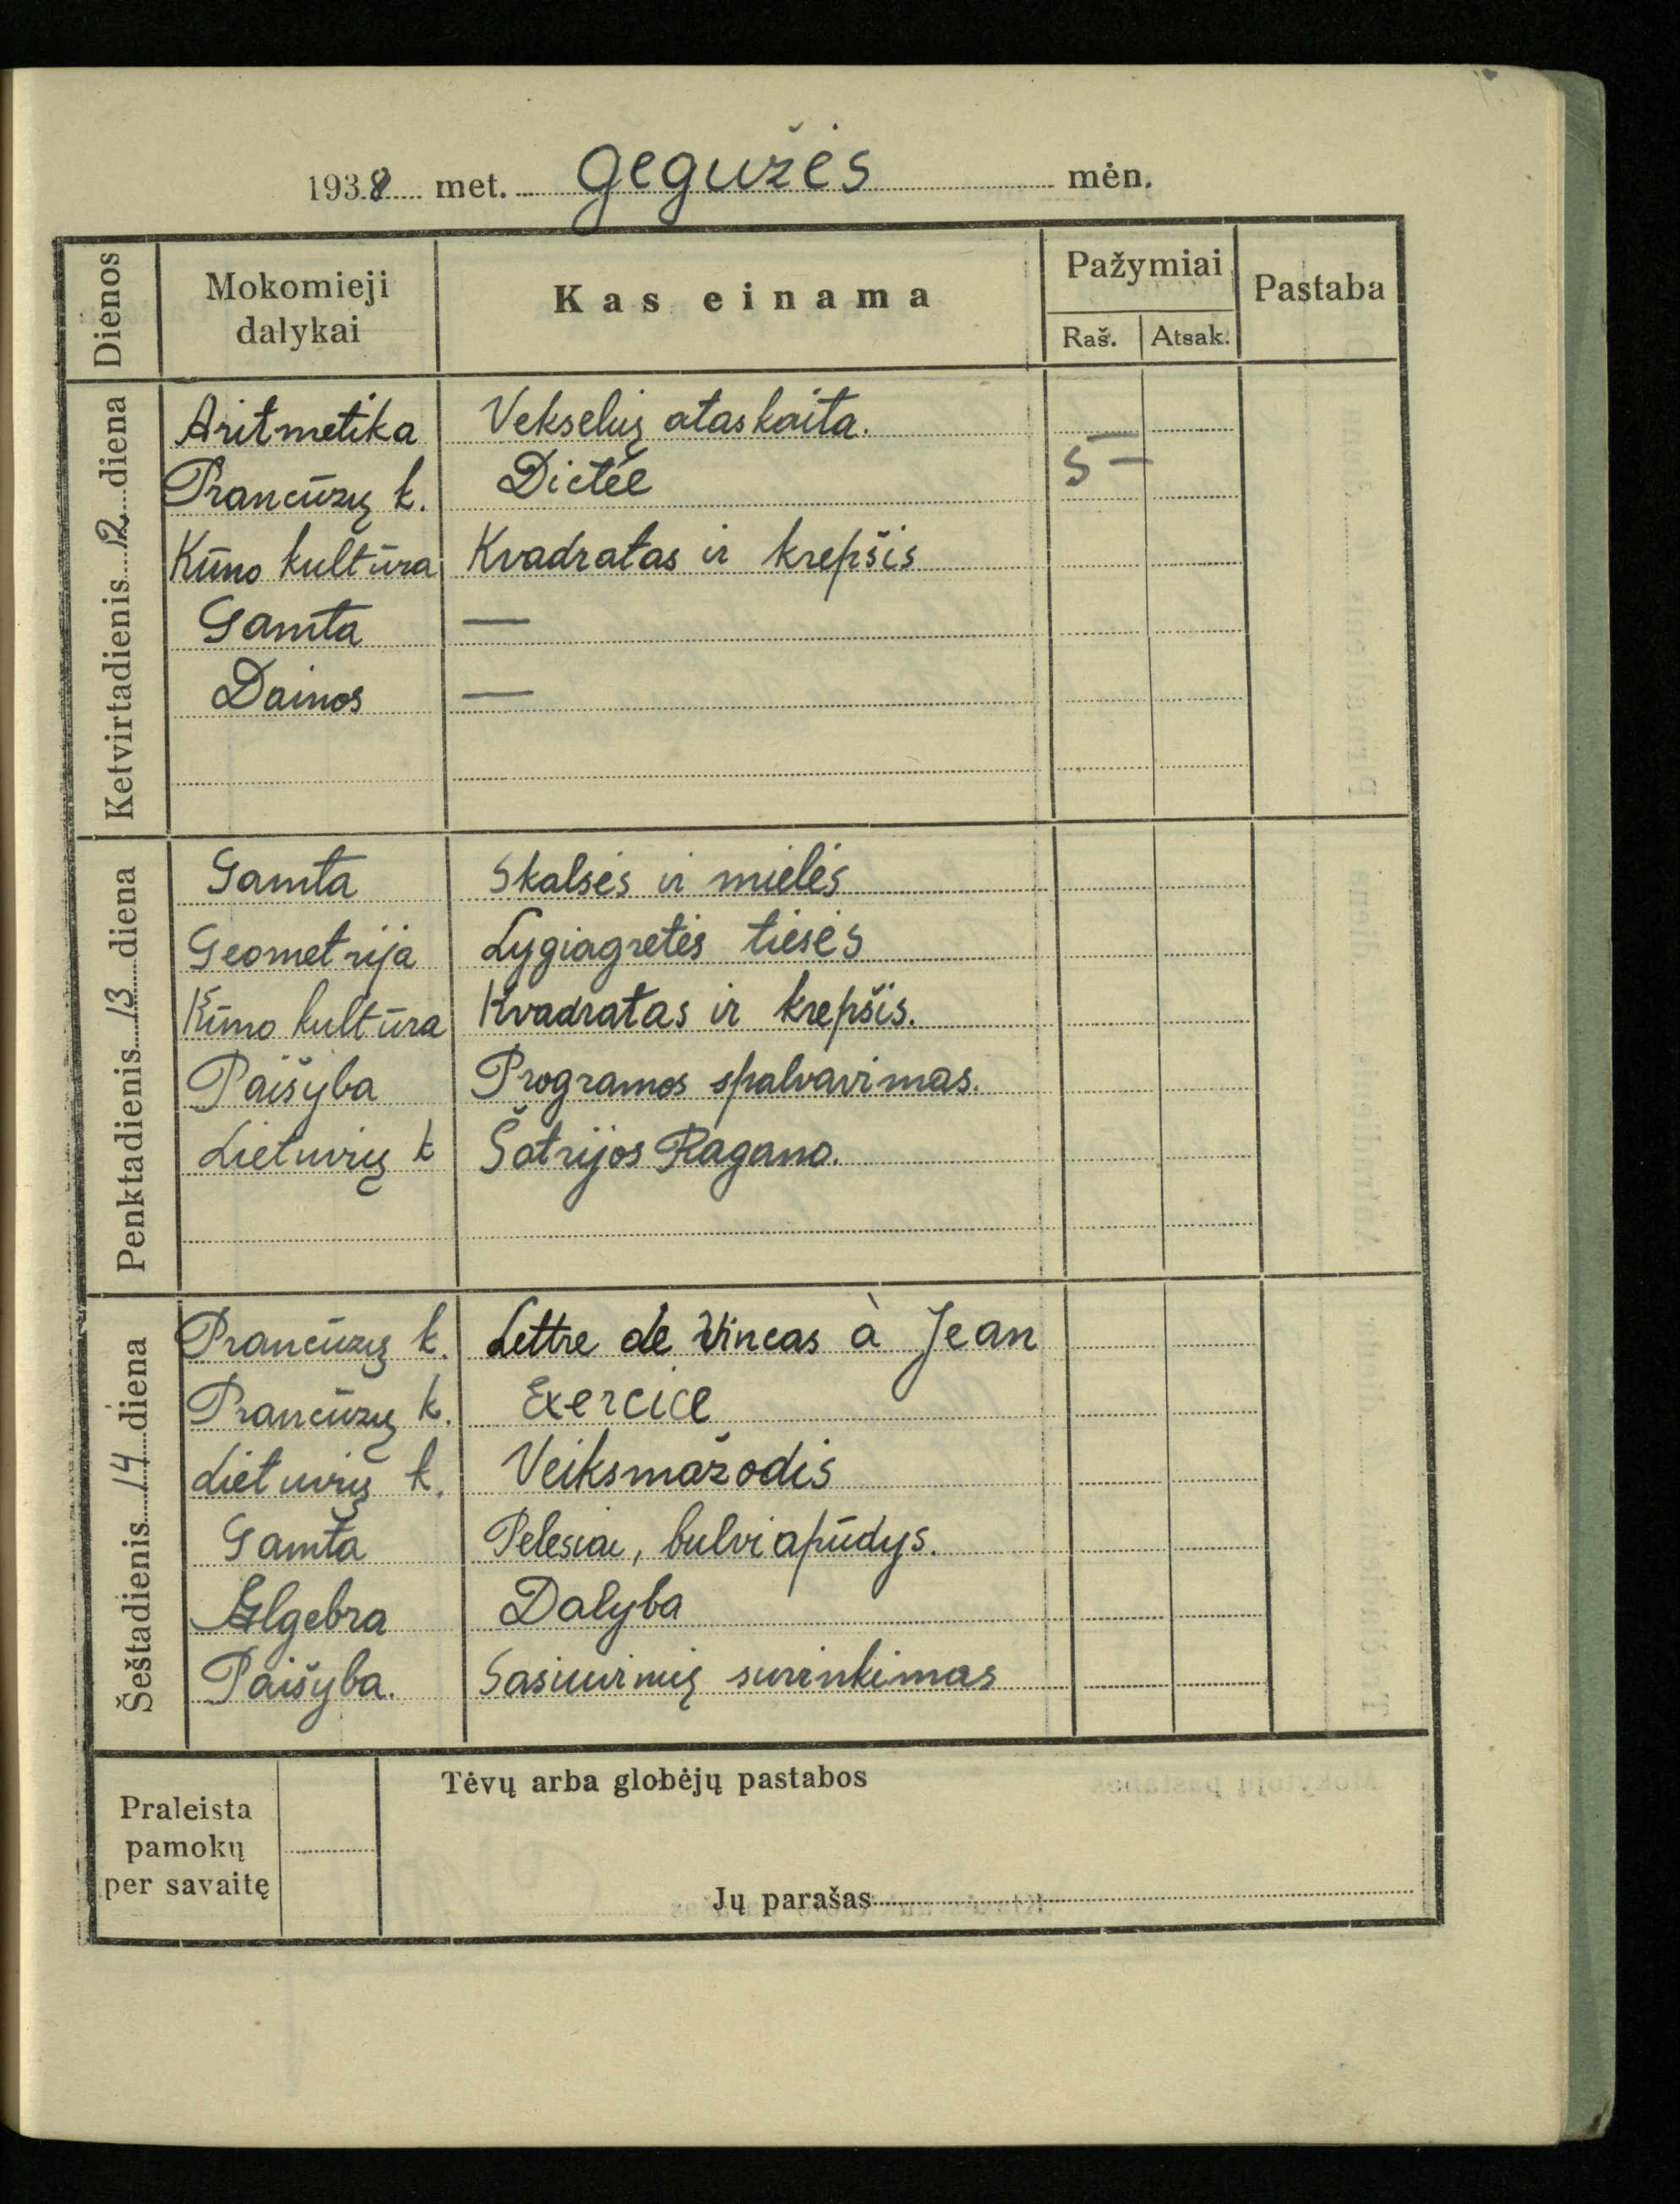 1938 met. gegužės mėn.
Dienos Mokomieji dalykai Kas einama Pažymiai Pastaba
Raš. Atsak.
Ketvirtadienis 12 diena
Aritmetika Vekselių ataskaita.
Prancūzų k. Dictée 5-
Kūno kultūra Kvadratas ir krepšis
Gamta —
Dainos —
Penktadienis 13 diena
Gamta Skalsės ir mielės
Geometrija Lygiagretės tiesės
Kūno kultūra Kvadratas ir krepšis.
Paišyba Programos spalvavimas.
Lietuvių k Šatrijos Ragana.
Šeštadienis 14 diena
Prancūzų k. Lettre de Vincas à Jean
Prancūzų k. Exercice
Lietuvių k. Veiksmažodis
Gamta Pelesiai, bulviapūdys.
Algebra Dalyba
Paišyba. Sasiuvinių surinkimas
Praleista
pamokų
per savaitę
Tėvų arba globėjų pastabos
Jų parašas